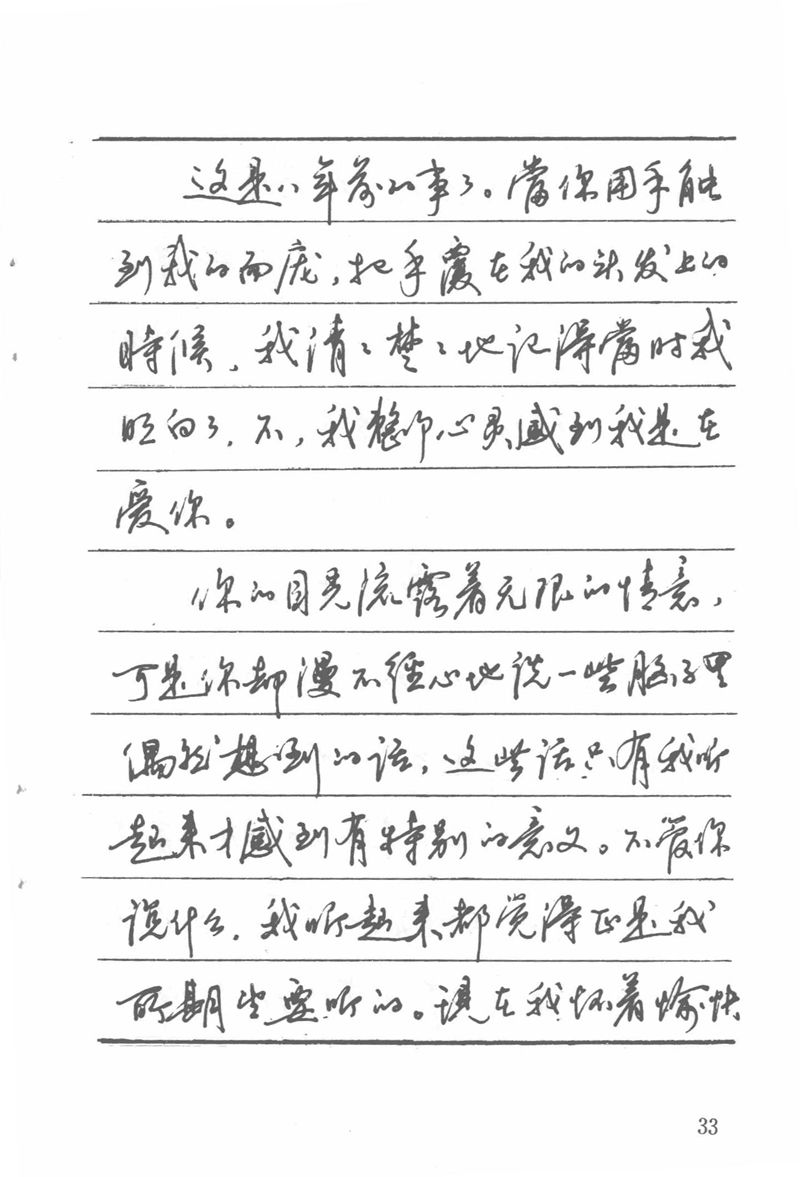 这是八年前的事了。當你用手触
到我的面庞,把手覆在我的头发上的
時候,我清々楚々地记得當时我
明白了,不,我整个心灵感到我是在
爱你。
你的目光流露着无限的情意,
可是你却漫不经心地说一些脑子里
偶然想到的话,这些话只有我听
起来才感到有特别的意义。不管你
说什么,我听起来都觉得正是我
所期望要听的。现在我怀着愉快
33